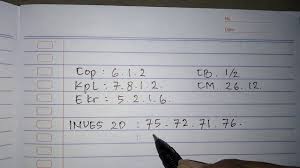 No.
Date
Cop : 6.1.2 CB. 1/2
KpL : 7.8.1.2 CM. 26.12
Ekr : 5.2.1.6
INVES 2D : 75-72.71.76.